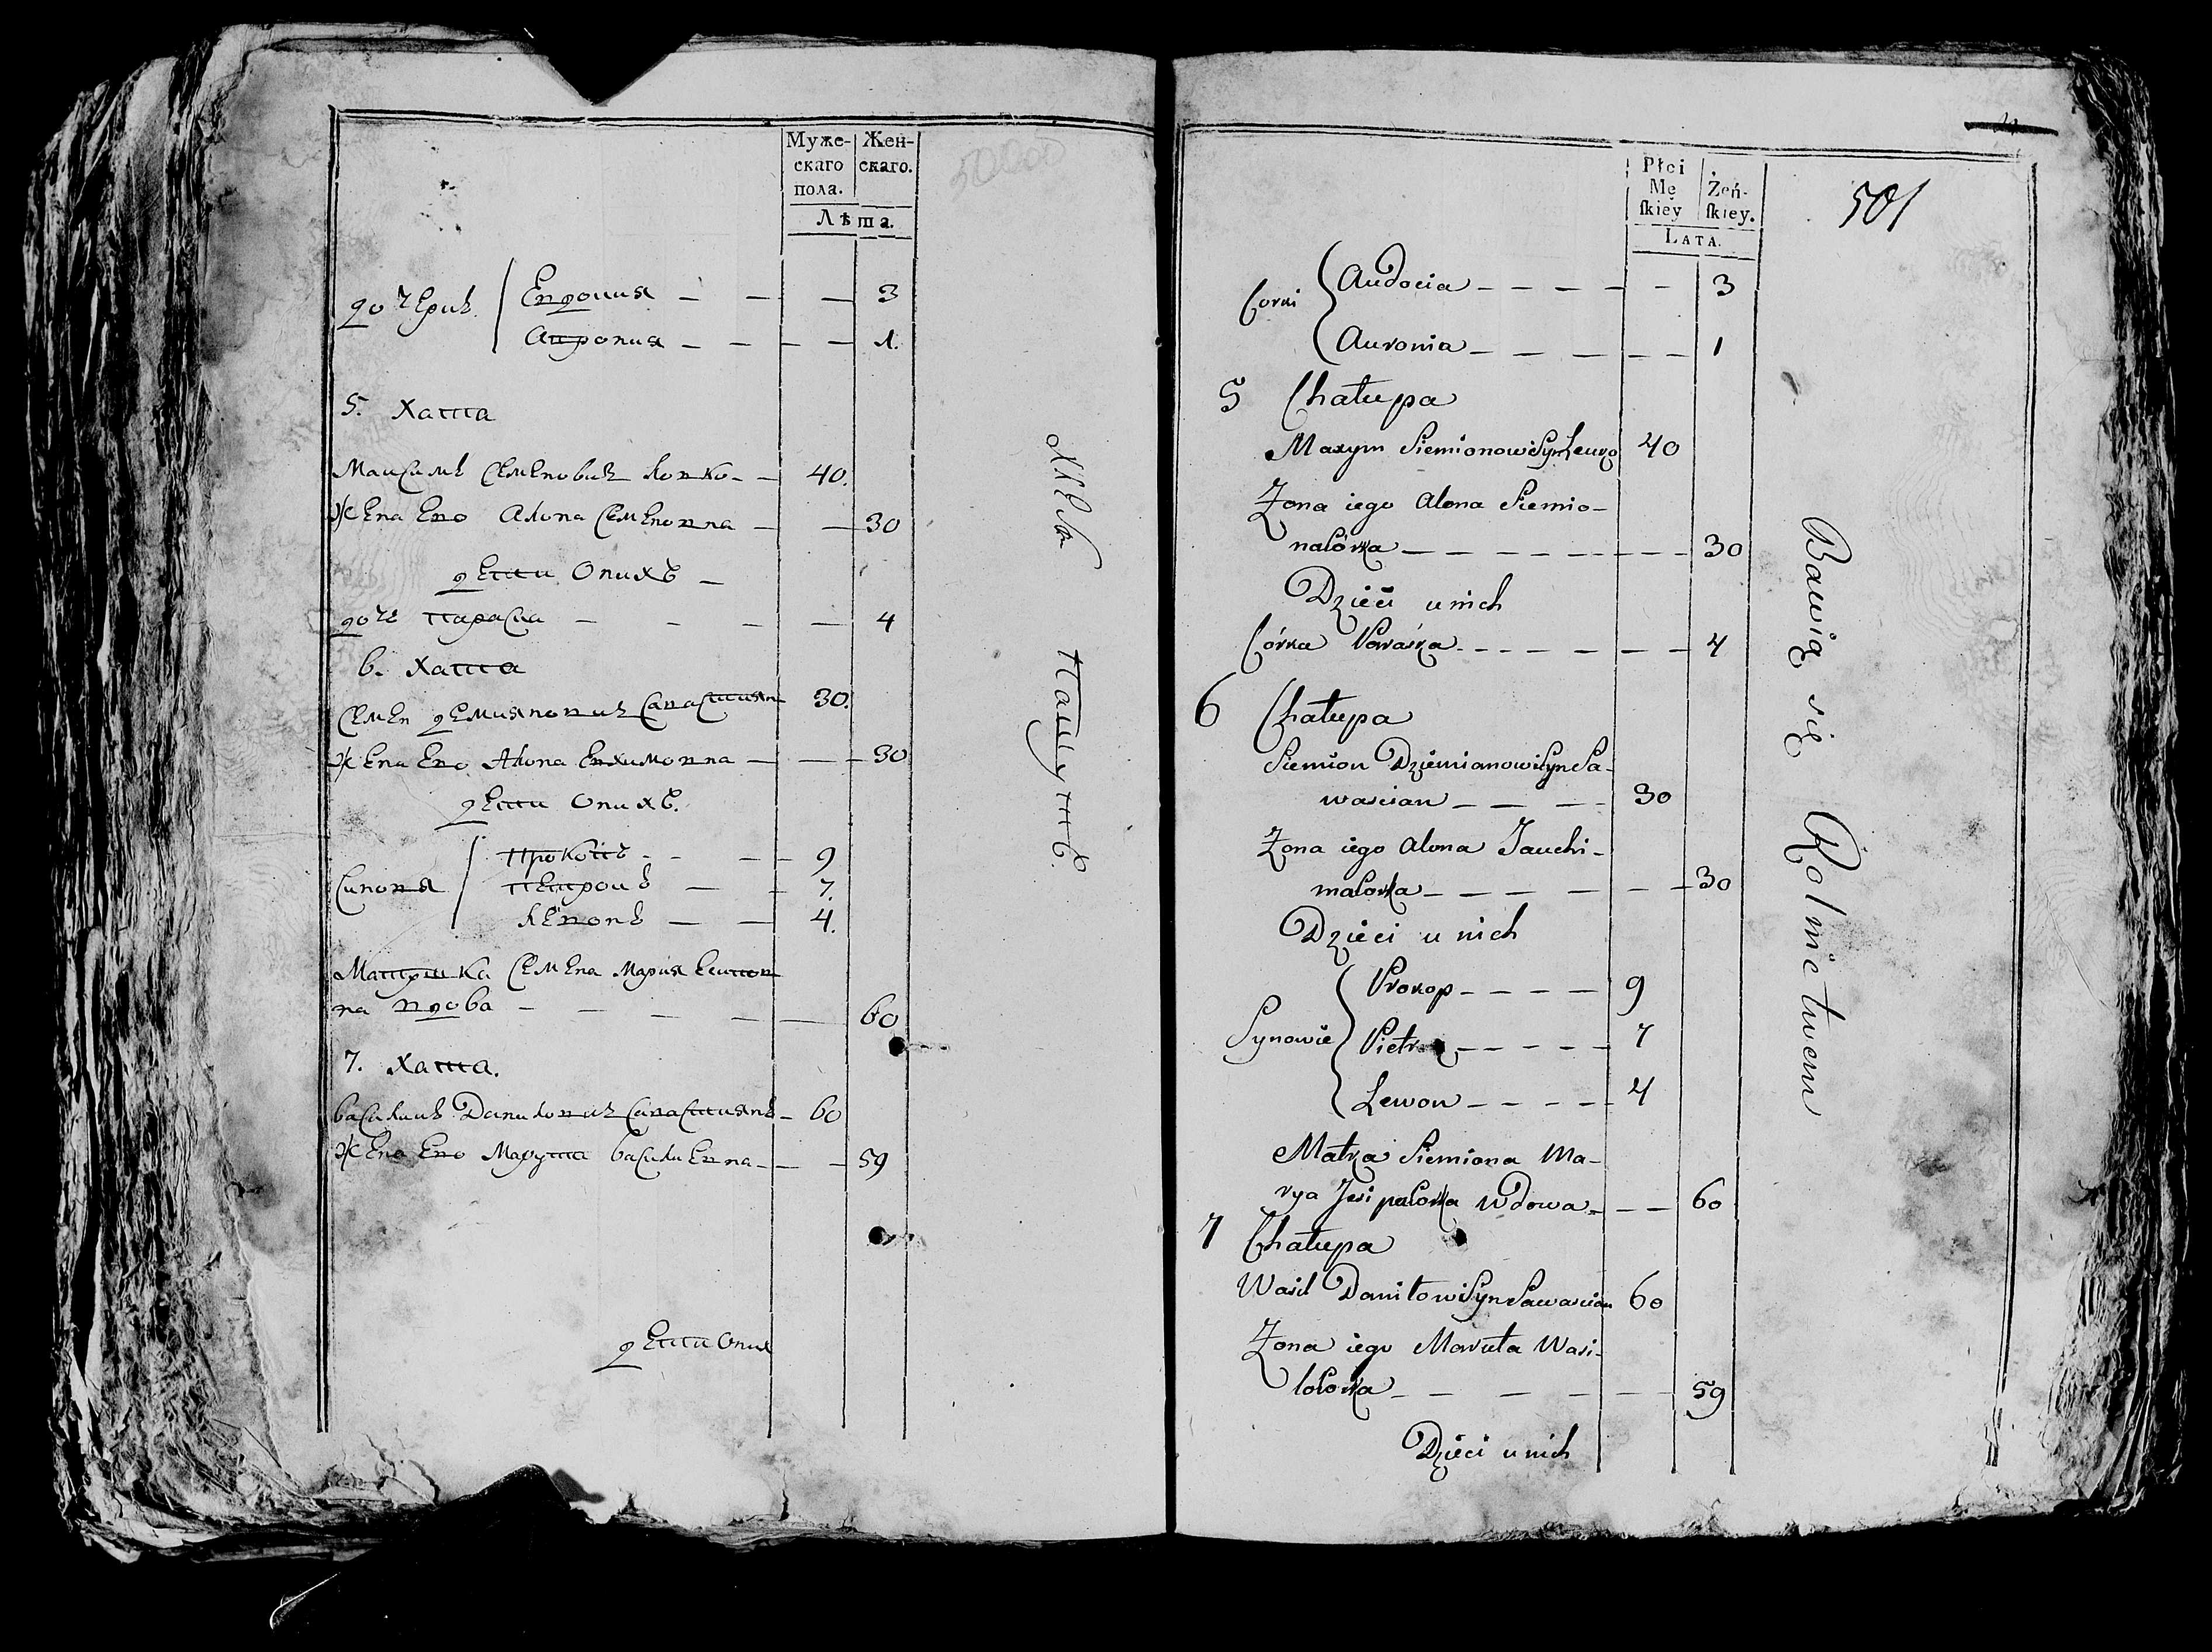 Муже-
скаго
пола.
Жен-
скаго.
Лѣта.
дочери
Евдокия — — — 3
Апрония — — — — 1.
5. Хата
Максимъ Семеновичъ Левко — — 40.
Жена Его Алона Семеновна — — 30
дети Онихъ —
дочь Параска — — — — 4
6. Хата
Семен Демияновичъ Савастиян 30.
Жена Его Алона Евхимовна — — — 30
дети Онихъ.
Синовя
Прокопъ — — — 9
Петрокъ — — 7.
Левонъ — — 4.
Матушка Семена Мария Есипов
на вдова — — — — — 60
7. Хата.
Василикъ Данилович Савастиянъ — 60
Жена Его Марута Василиевна — — — 59
дети Оних
Пашутъ.
Płci
Mę
skiey
Żeń-
skiey.
LATA.
501
Corki
Audocia — — — — — 3
Auronia — — — — — 1
5 Chałupa
Maxym Siemionowi Syn Leuko 40
Żona iego Alona Siemio-
nałowka — — — — — — — — 30
Dzieci u nich
Córka Paraska — — — — — — — 4
6 Chałupa
Siemion Dziemianowi Syn Sa-
wascian — — — — 30
Żona iego Alona Jauchi-
małowka — — — — — — 30
Dzieci u nich
Synowie
Prokop — — — — 9
Pietr — — — — — 7
Lewon — — — — 4
Matka Siemiona Ma-
rya Jesipałowka wdowa — — — 60
7 Chałupa
Wasil Daniłowi Syn Sawascian 60
Żona iego Maruta Wasi-
lołowka — — — — — — 59
Dzieci u nich
Bawią się Rolnictwem